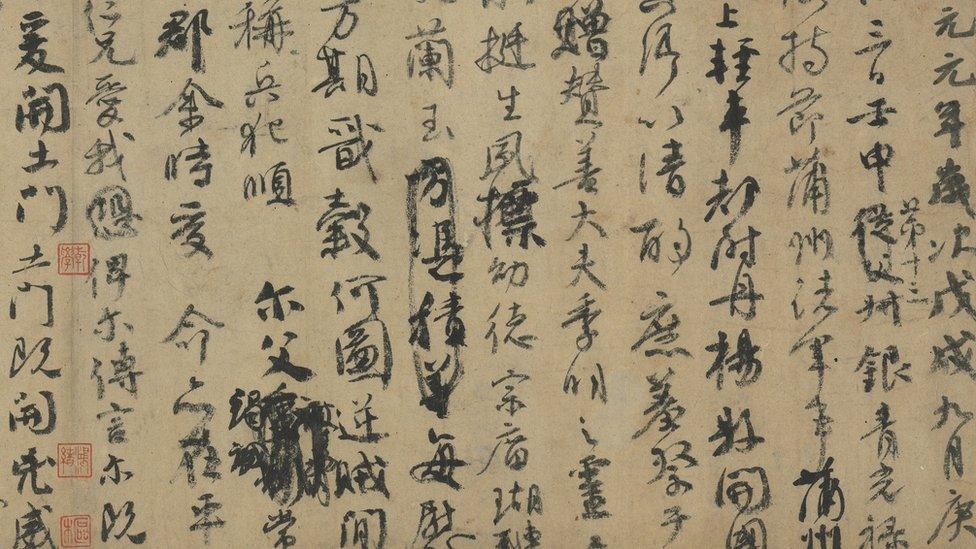 元元年歲次戊戌九月庚
三日壬申第十三從父叔銀青光祿
持節蒲州諸軍事蒲州
上輕車都尉丹楊縣開國
以清酌庶羞祭于
贈贊善大夫季明之靈
挺生夙標幼德宗廟瑚璉
蘭玉方憑積善每慰
方期戩穀何圖逆賊間
稱兵犯順爾父竭誠常
郡余時受命亦在平
仁兄愛我恐俾爾傳言爾既
爰開土門土門既開凶威